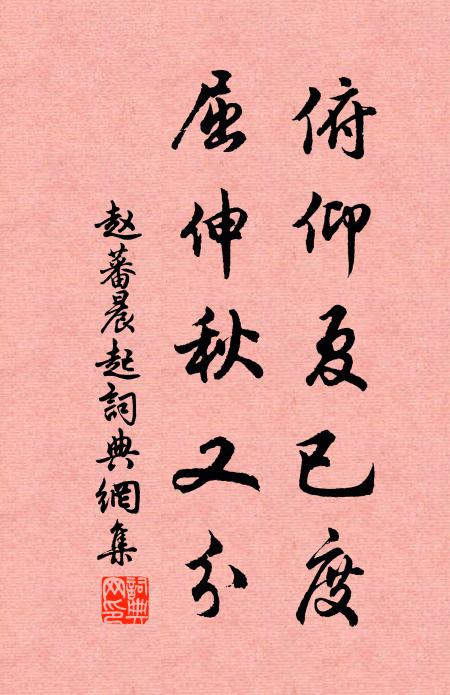 俯仰夏已度
屈伸秋又分
赵蕃晨起詞典網集
詞典网印